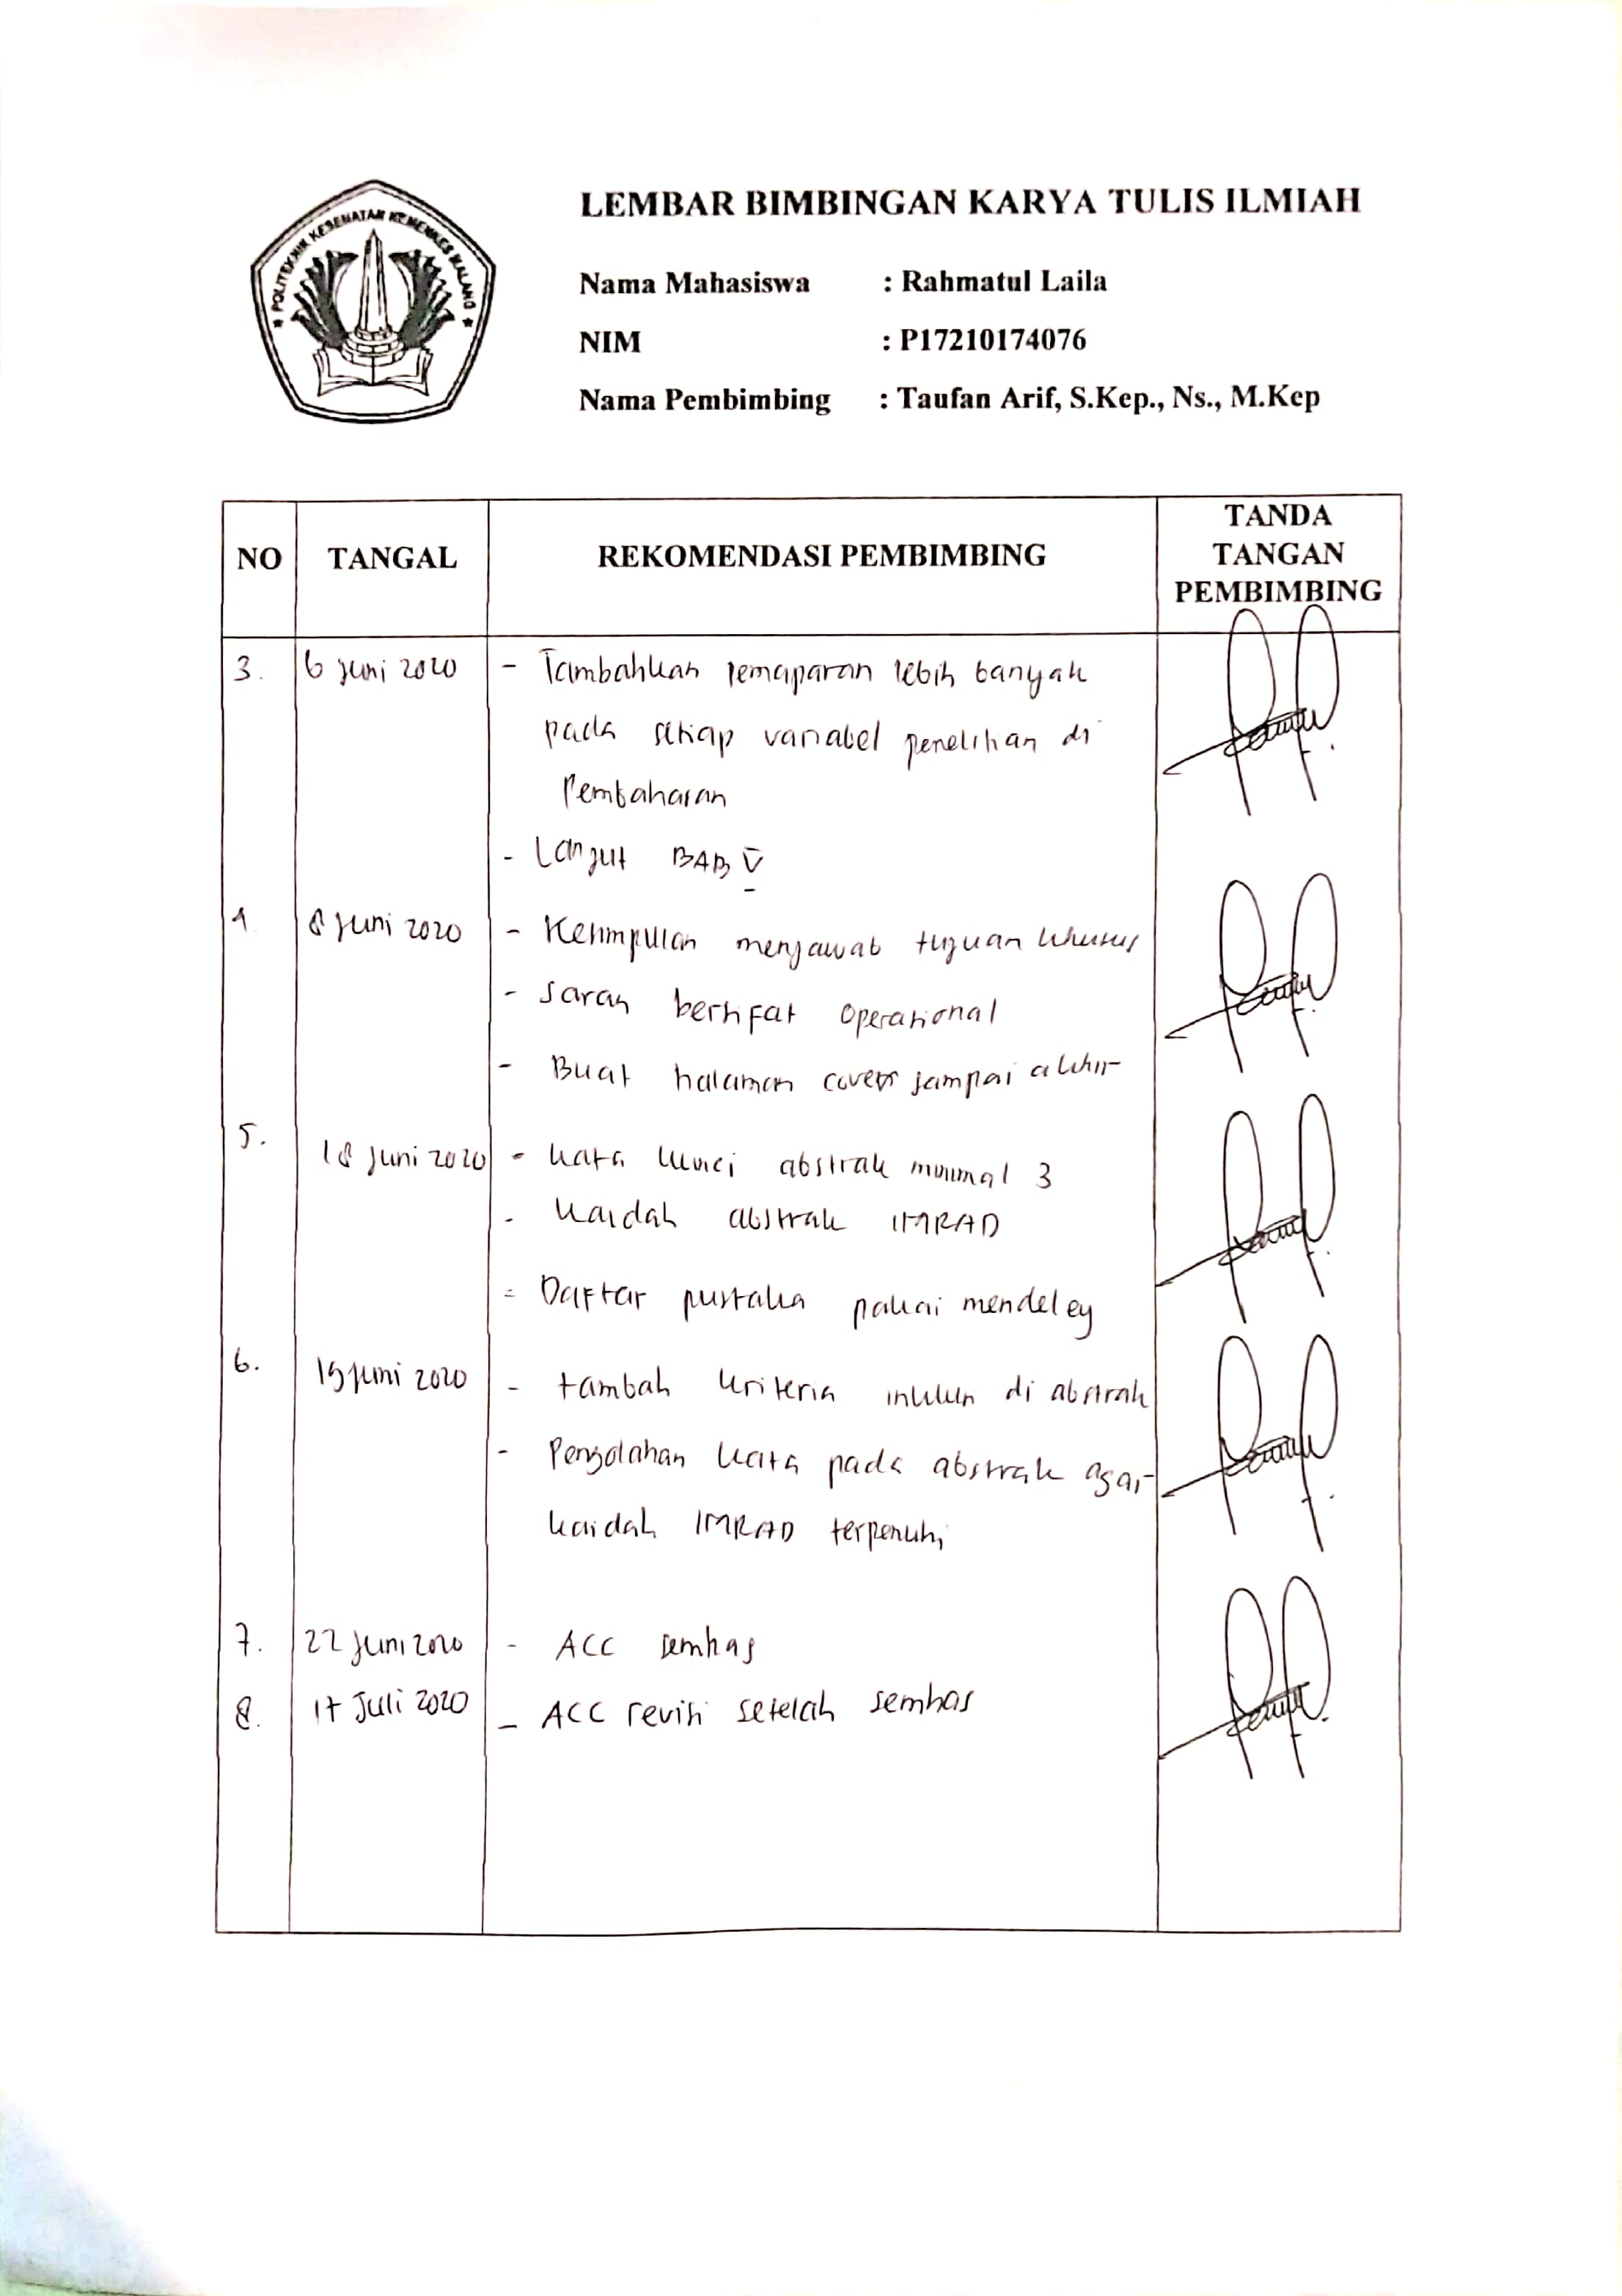 ★ POLITEKNIK KESEHATAN KEMENKES MALANG ★
LEMBAR BIMBINGAN KARYA TULIS ILMIAH
Nama Mahasiswa : Rahmatul Laila
NIM : P17210174076
Nama Pembimbing : Taufan Arif, S.Kep., Ns., M.Kep
NO TANGAL REKOMENDASI PEMBIMBING TANDA TANGAN PEMBIMBING
3. 6 Juni 2020 - Tambahkan pemaparan lebih banyak
pada setiap variabel penelitian di
Pembahasan
- Lanjut BAB V
4. 8 Juni 2020 - Kesimpulan menjawab tujuan khusus
- Saran bersifat operasional
- Buat halaman cover sampai akhir
5. 18 Juni 2020 - kata kunci abstrak minimal 3
- kaidah abstrak IMRAD
- Daftar pustaka pakai mendeley
6. 19 Juni 2020 - tambah kriteria inklusi di abstrak
- Pengolahan kata pada abstrak agar
kaidah IMRAD terpenuhi
7. 22 Juni 2020 - ACC semhas
8. 17 Juli 2020 - ACC revisi setelah semhas